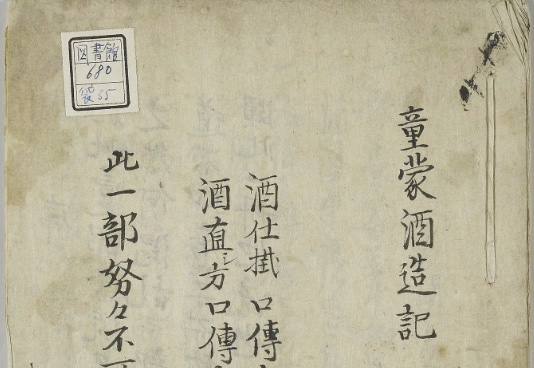 童蒙酒造記
酒仕掛口傳
酒直シ方口傳
此一部努々不可
図書館
680
35